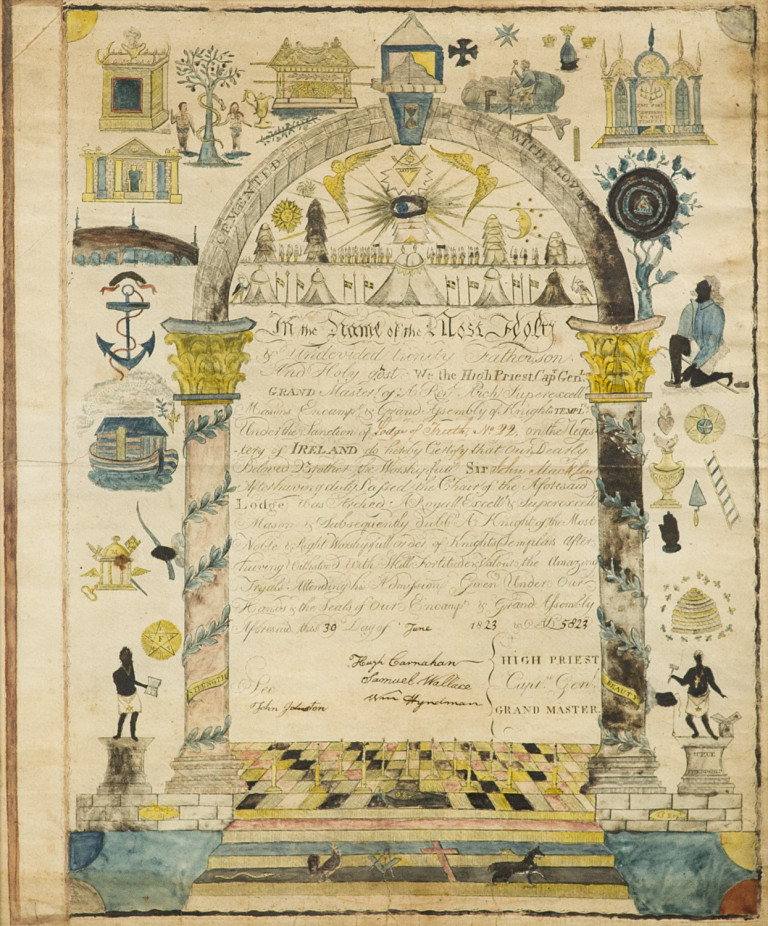 CEMENTED WITH LOVE
In the Name of the Most Holy
& Undevided trinity Father son
And Holy gost We the High Priest Capt Genl
GRAND Master of A Royl Arch Superexcell
Masons Encampt & Grand Assembly of Knights TEMPl
Under the Sanction of Lodge of Truth No 22 on the Regis
tery of IRELAND do hereby Certify that Our Dearly
Beloved Brother the Worshipfull Sir John
After having duly the Chair of the Aforesaid
Lodge Was Arched A Royall Excell & Superexcell
Mason & Subsequently dubb'd A Knight of the Most
Noble & Right Worshipfull order of Knights Templars After
haveing With Skill Fortitude & Valour the Amazing
Tryals Attending his Admission Given Under Our
Hands & the Seals of Our Encampt & Grand Assembly
Aforesaid this 30 Day of June 1823 5823
Hugh Carnahan
HIGH PRIEST
Samuel Wallace
Captn Genl
Wm Hyndman
GRAND MASTER
Sec
John Johnston
STRENGTH
BEAUTY